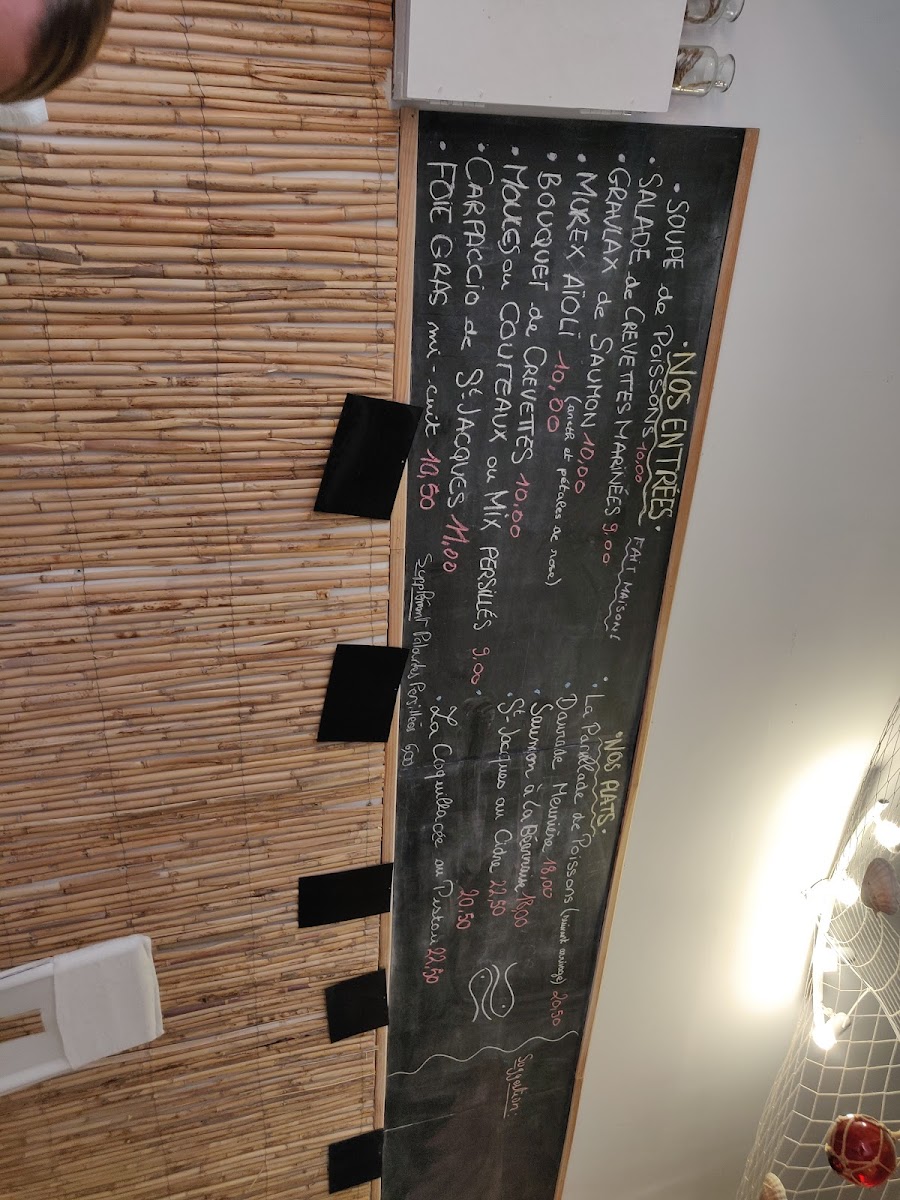 • NOS ENTRÉES •
FAIT MAISON !
• SOUPE de POISSONS 10,00
• SALADE de CREVETTES MARINÉES 9,00
• GRAVLAX de SAUMON 10,00
(aneth et pétales de rose)
• MUREX AÏOLI 10,00
• BOUQUET de CREVETTES 10,00
• MOULES ou COUTEAUX ou MIX PERSILLÉS 9,00
• CARPACCIO de St-JACQUES 11,00
• FOIE GRAS mi-cuit 10,50
Supplément Palourdes Persillées 6,00
• NOS PLATS •
• La Parillade de Poissons (suivant arrivage) 20,50
• Daurade Meunière 18,00
• Saumon à la Béarnaise 18,00
• St-Jacques au Cidre 22,50
20,50
• La Coquillacée au Pistou 22,50
Suggestion :